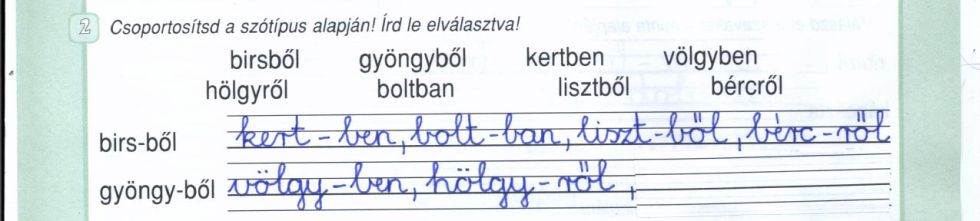 2 Csoportosítsd a szótípus alapján! Írd le elválasztva!
birsből gyöngyből kertben völgyben
hölgyről boltban lisztből bércről
birs-ből kert-ben, bolt-ban, liszt-ből, bérc-ről
gyöngy-ből völgy-ben, hölgy-ről,